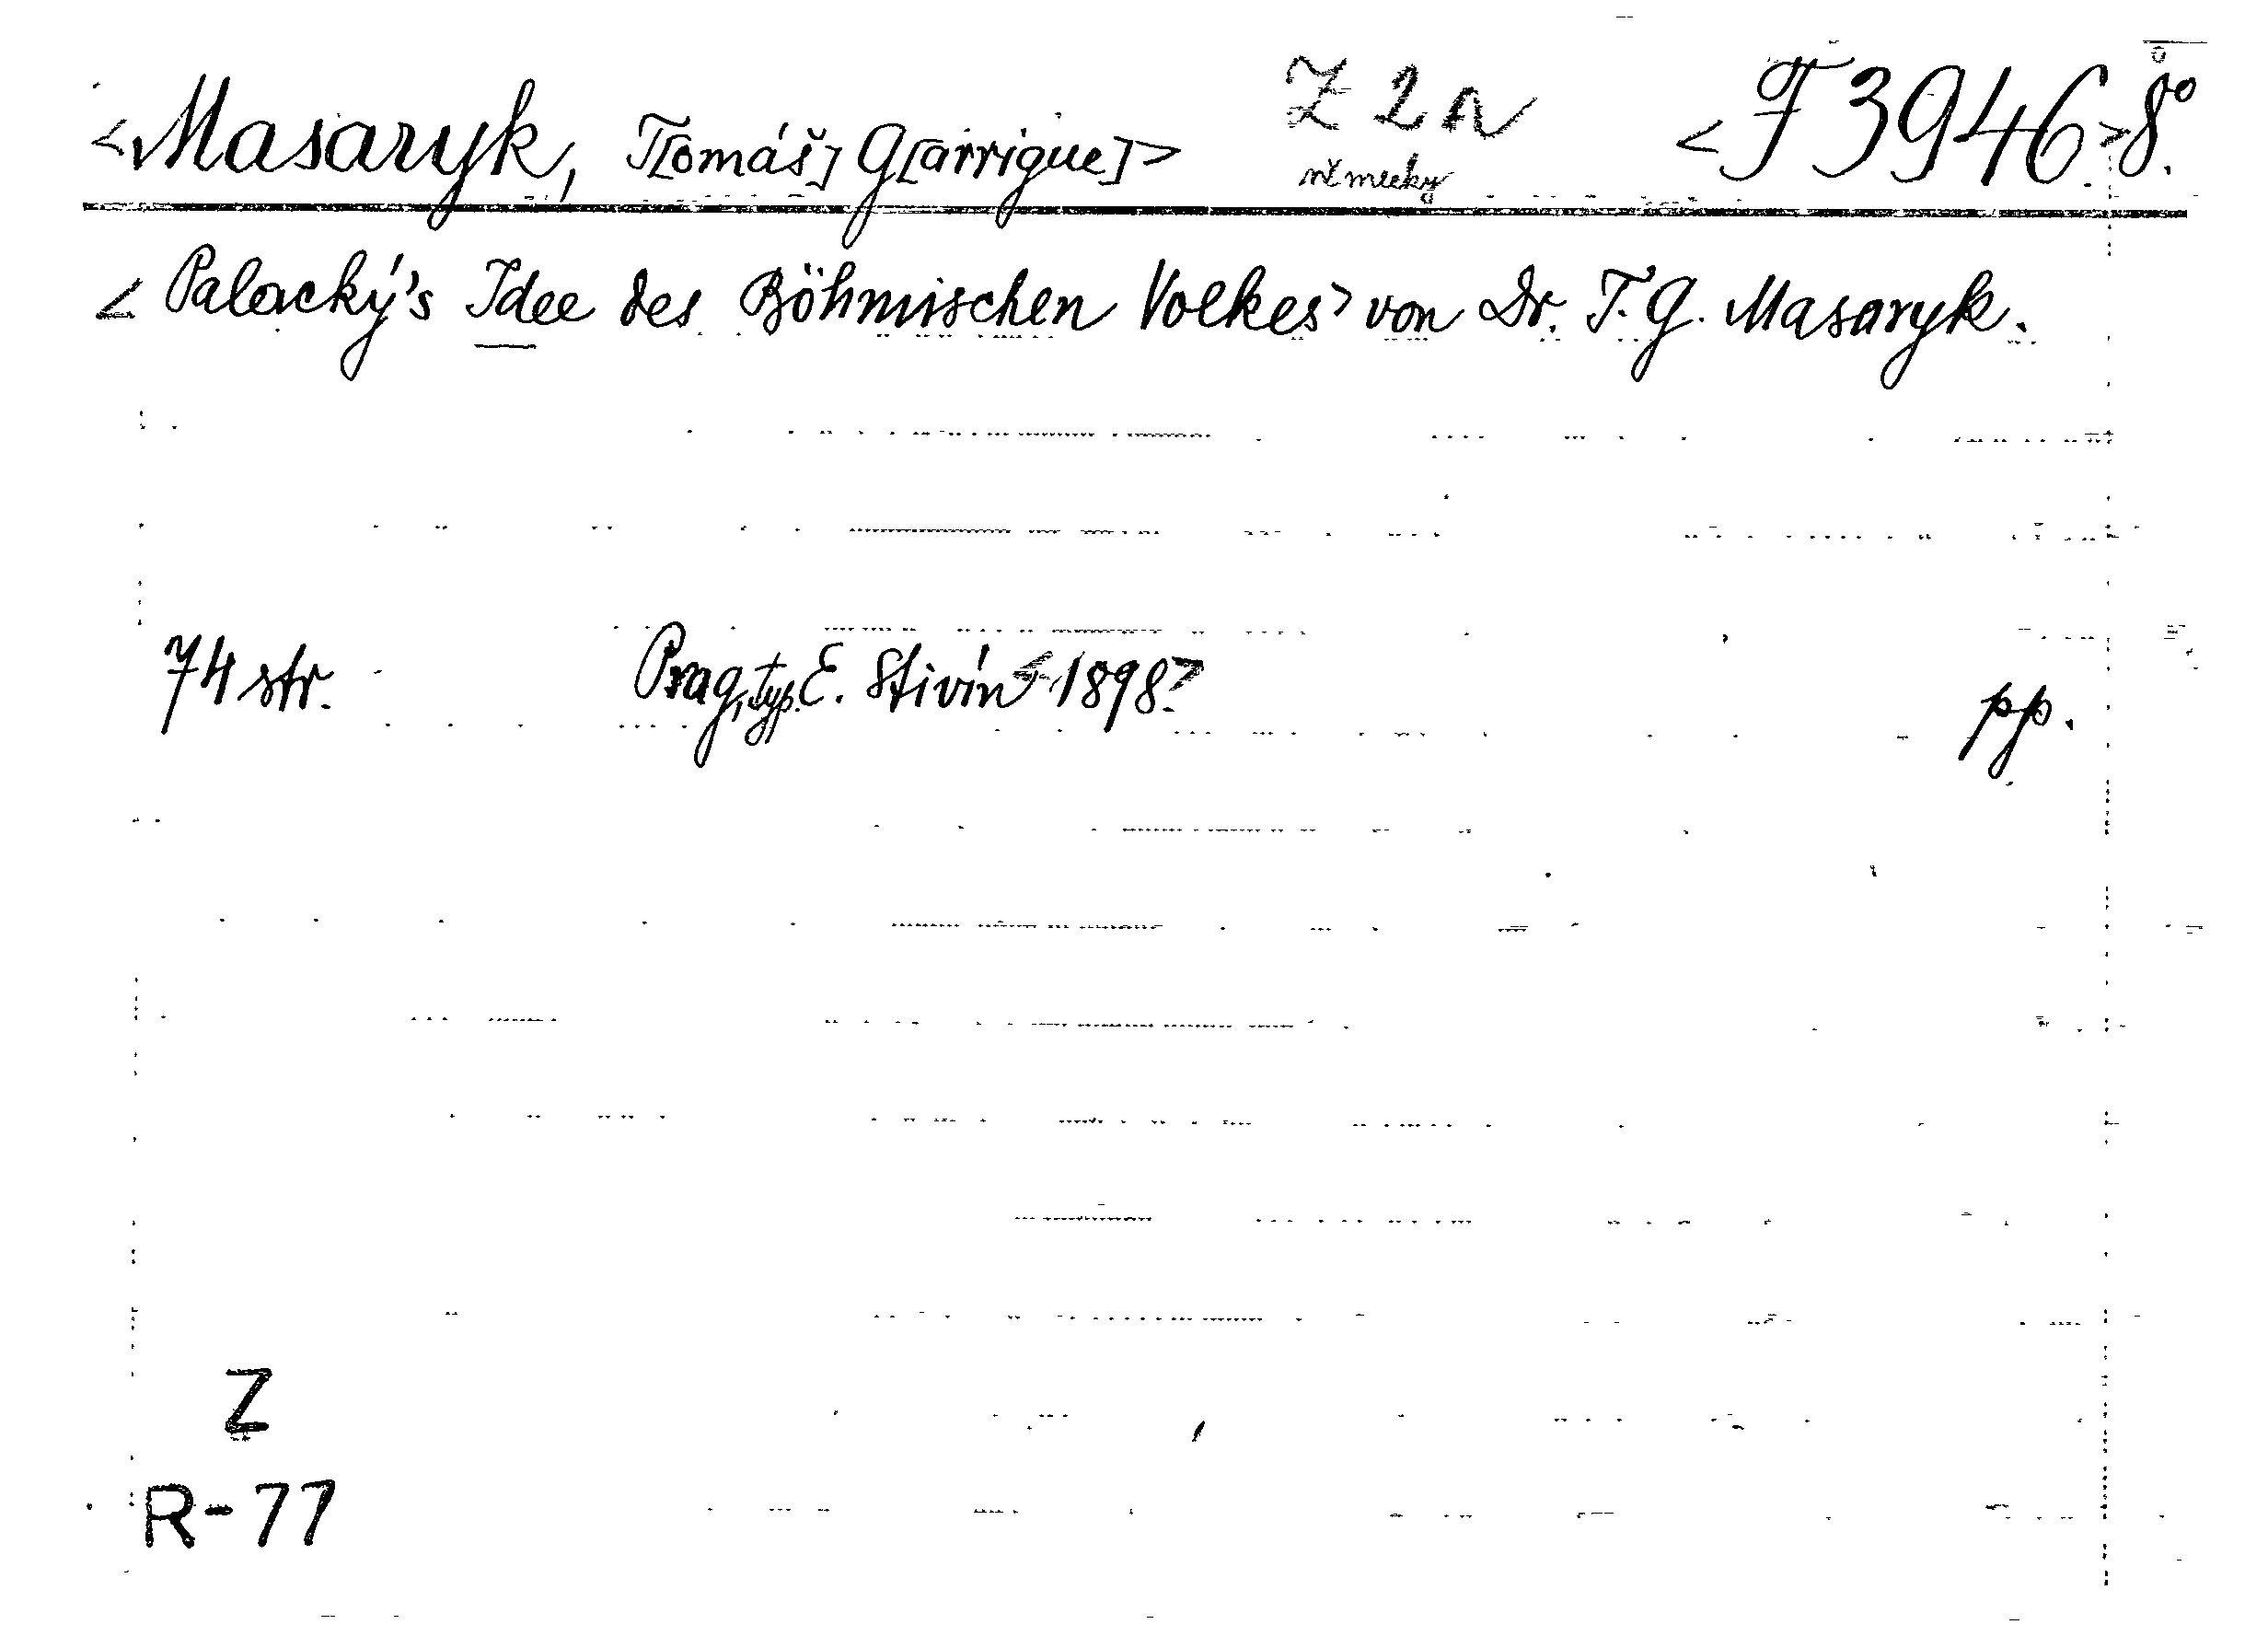 <Masaryk, T[omáš] G[arrigue]> Z 2a <F 3946.> 8°.
německy
<Palacký's Idee des Böhmischen Volkes> von Dr. T. G. Masaryk.
74 str. Prag, typ. E. Stivín <1898.> pp.
Z
R-77